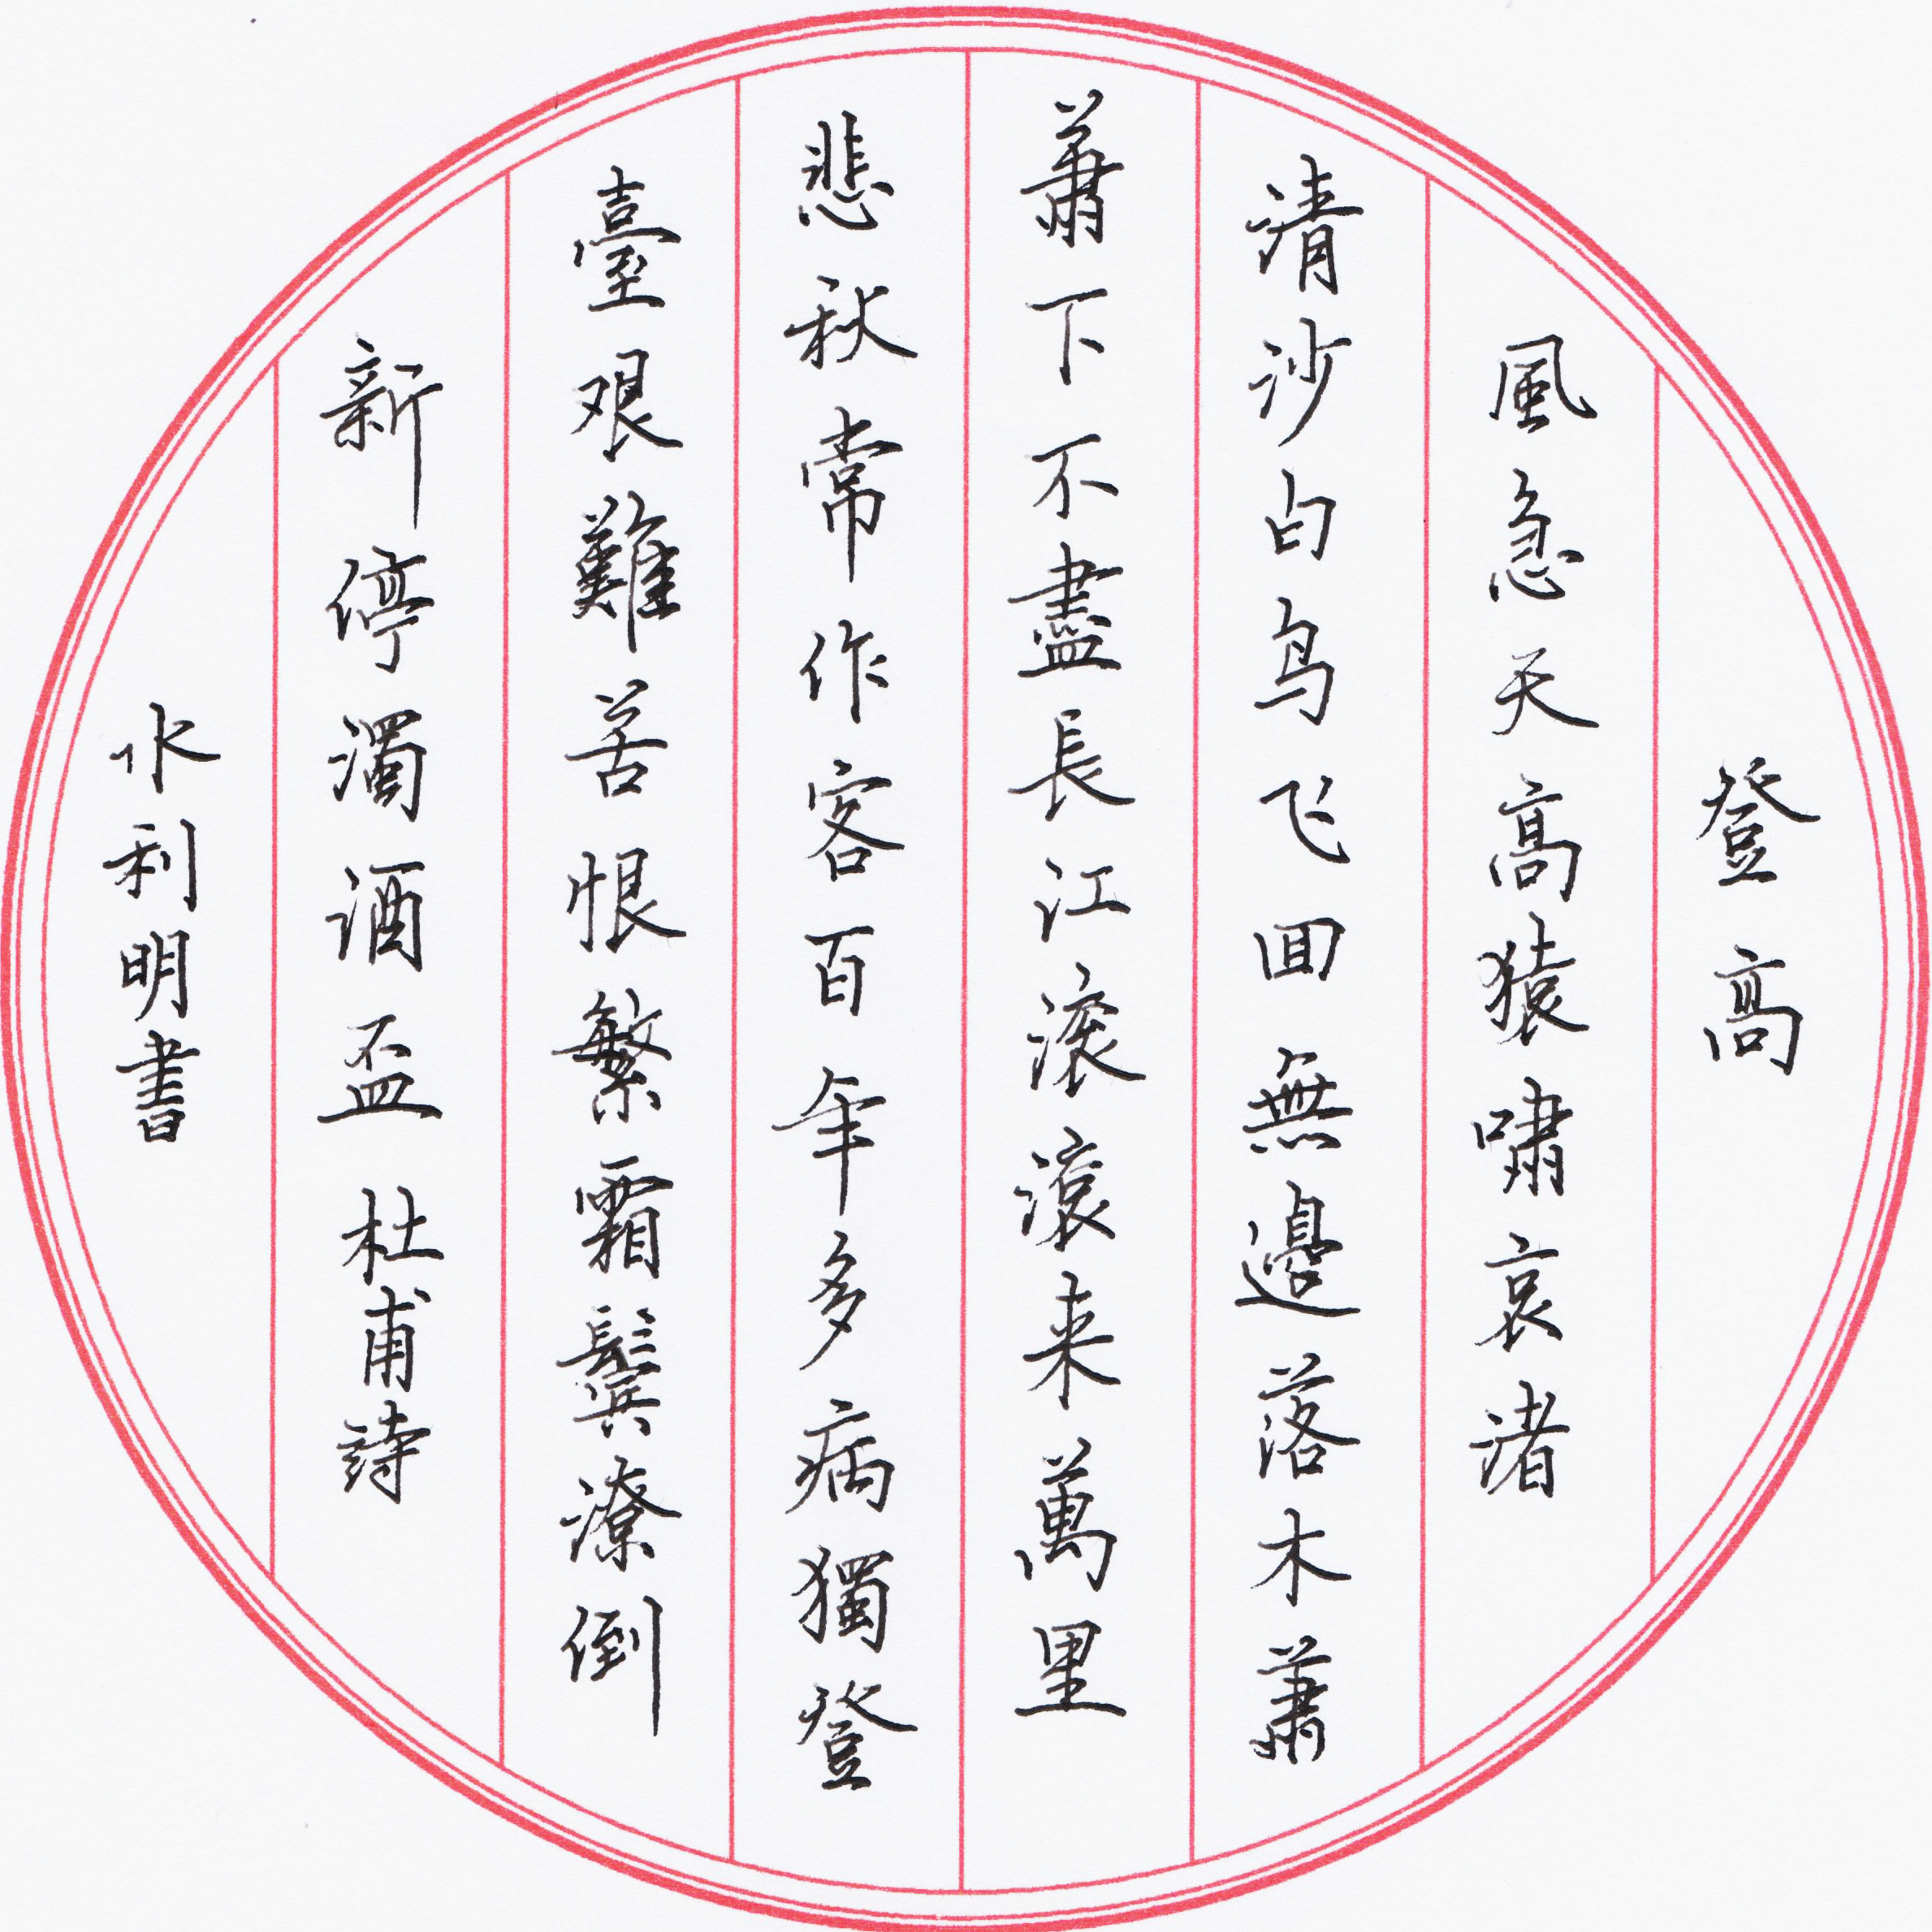 登高
風急天高猿嘯哀渚
清沙白鸟飞回無邊落木蕭
蕭下不盡長江滚滚来萬里
悲秋常作客百年多病獨登
臺艰難苦恨繁霜鬓潦倒
新停濁酒盃 杜甫詩
水利明書